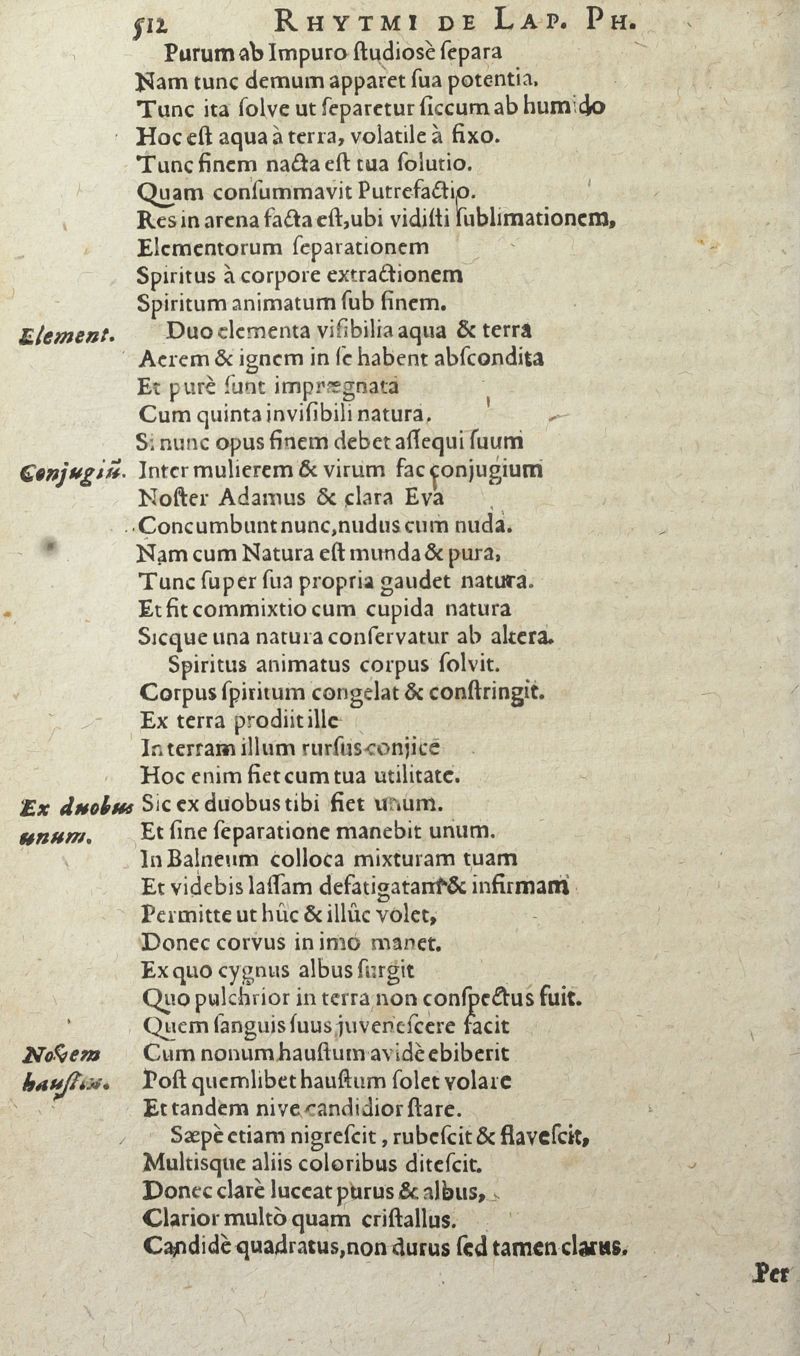 512 RHYTMI DE LAP. PH.
Purum ab Impuro ſtudiosè ſepara
Nam tunc demum apparet ſua potentia.
Tunc ita ſolve ut ſeparetur ſiccum ab humido
Hoc eſt aqua à terra, volatile à fixo.
Tunc finem nacta eſt tua ſolutio.
Quam conſummavit Putrefactio.
Res in arena facta eſt, ubi vidiſti ſublimationem,
Elementorum ſeparationem
Spiritus à corpore extractionem
Spiritum animatum ſub finem.
Element. Duo elementa viſibilia aqua & terra
Aerem & ignem in ſe habent abſcondita
Et purè ſunt imprægnata
Cum quinta inviſibili natura.
Si nunc opus finem debet aſſequi ſuum
Conjugiū. Inter mulierem & virum fac conjugium
Noſter Adamus & clara Eva
Concumbunt nunc, nudus cum nuda.
Nam cum Natura eſt munda & pura,
Tunc ſuper ſua propria gaudet natura.
Et fit commixtio cum cupida natura
Sicque una natura conſervatur ab altera.
Spiritus animatus corpus ſolvit.
Corpus ſpiritum congelat & conſtringit.
Ex terra prodiit ille
In terram illum rurſus conjice
Hoc enim fiet cum tua utilitate.
Ex duobus Sic ex duobus tibi fiet unum.
unum. Et ſine ſeparatione manebit unum.
In Balneum colloca mixturam tuam
Et videbis laſſam defatigatam & infirmam
Permitte ut hûc & illûc volet,
Donec corvus in imo manet.
Ex quo cygnus albus ſurgit
Quo pulchrior in terra non conſpectus fuit.
Quem ſanguis ſuus juveneſcere facit
Novem Cum nonum hauſtum avidè ebiberit
hauſtus. Poſt quemlibet hauſtum ſolet volare
Et tandem nive candidior ſtare.
Sæpè etiam nigreſcit, rubeſcit & flaveſcit,
Multisque aliis coloribus diteſcit.
Donec clarè luceat purus & albus,
Clarior multò quam criſtallus.
Candidè quadratus, non durus ſed tamen clarus.
Per